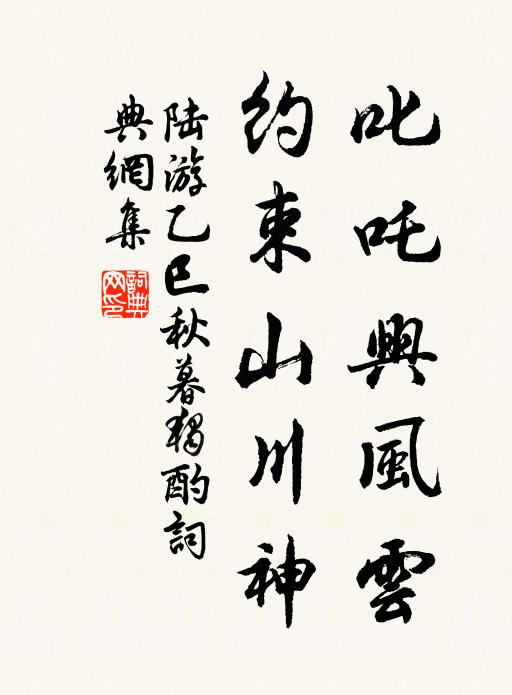 叱吒興風雲
約束山川神
陆游乙巳秋暮獨酌詞
典網集
詞典
网印